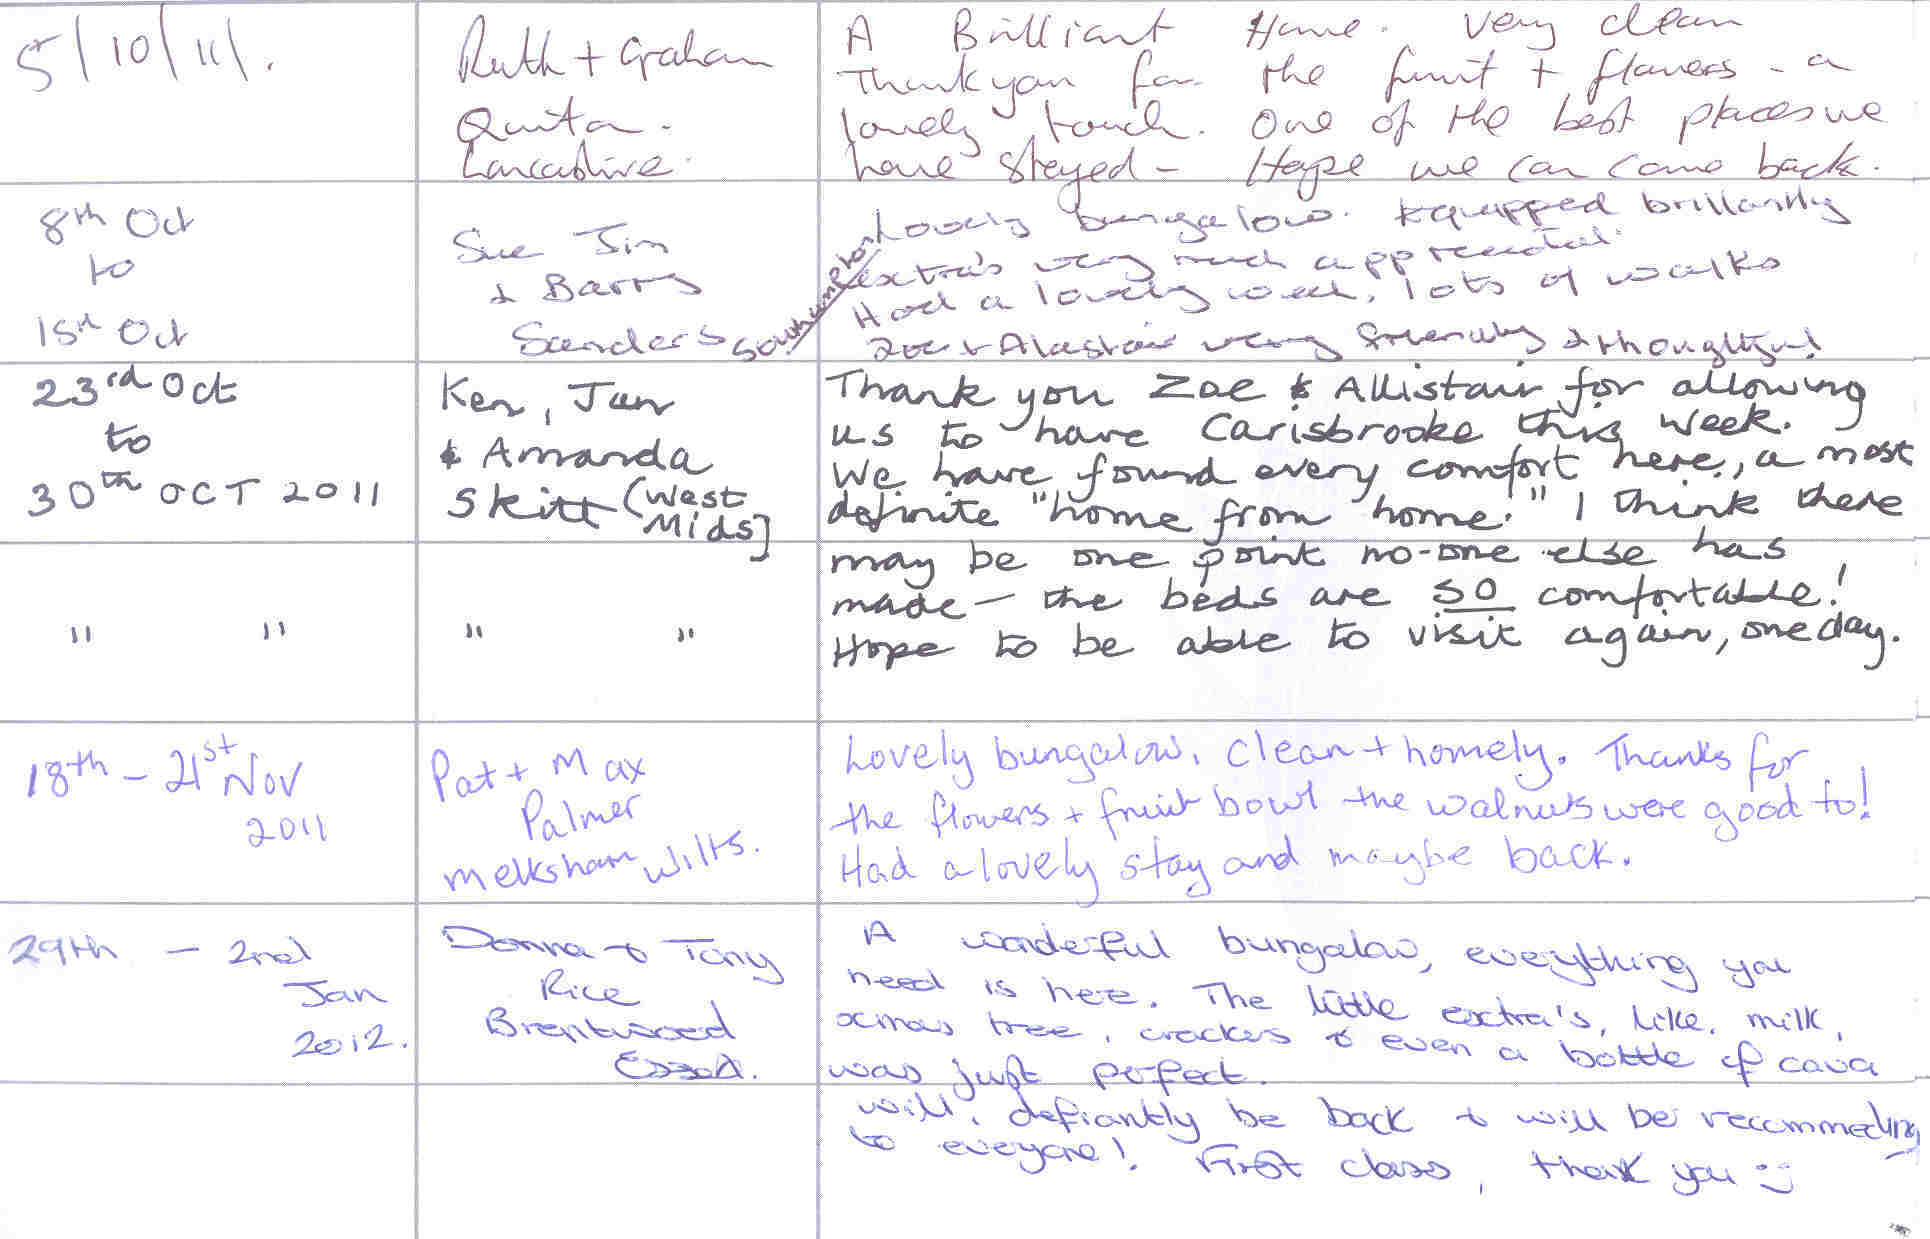 5/10/11/.
Ruth + Graham
Quita.
Lancashire.
A Brilliant Home. Very clean
Thankyou for the fruit + flowers - a
lovely touch. One of the best places we
have stayed - Hope we can come back.
8th Oct
to
15th Oct
Sue Jim
+ Barry
Sanders Southampton
Lovely bungalow. Equipped brillantly
extra's very much appreciated.
Had a lovely week, lots of walks
Zoe + Alastair very friendly + thoughtful
23rd Oct
to
30th OCT 2011
Ken, Jan
& Amanda
Skitt (West
Mids]
Thank you Zoe & Allistair for allowing
us to have Carisbrooke this week.
We have found every comfort here, a most
definite "home from home." I think there
may be one point no-one else has
made - the beds are SO comfortable!
Hope to be able to visit again, one day.
" "
" "
18th - 21st Nov
2011
Pat + Max
Palmer
Melksham Wilts.
Lovely bungalow, clean + homely. Thanks for
the flowers + fruit bowl the walnuts were good to!
Had a lovely stay and maybe back.
29th - 2nd
Jan
2012.
Donna & Tony
Rice
Brentwood
Essex.
A wonderful bungalow, everything you
need is here. The little extra's, like. milk,
xmas tree, crackers & even a bottle of cava
was just perfect.
will, defiantly be back & will be recommeding
to everyone! First class, thank you :)